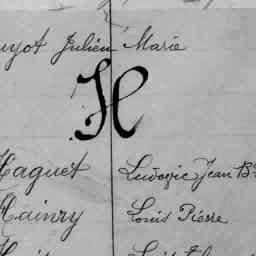 uyot Julien Marie
H
Haguet Ludovic Jean B
Hainry Louis Pierre